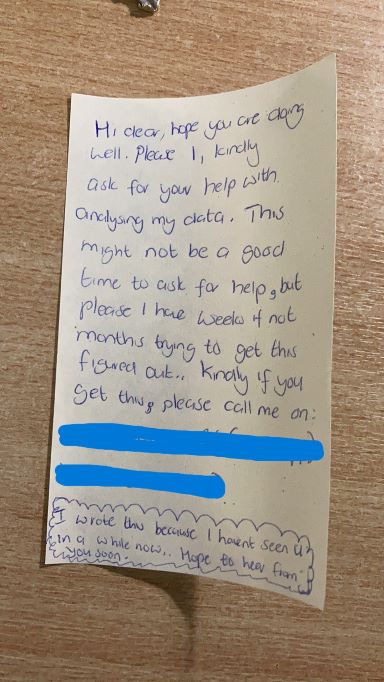 Hi dear, hope you are doing
well. Please I, kindly
ask for your help with
analysing my data. This
might not be a good
time to ask for help, but
please I have weeks if not
months trying to get this
figured out.. Kindly if you
get this, please call me on:
I wrote this because I havent seen u
in a while now.. Hope to hear from
you soon.